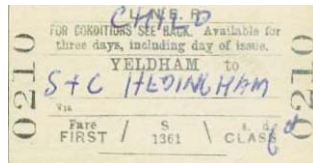 CHILD
FOR CONDITIONS SEE BACK. Available for
three days, including day of issue.
YELDHAM to
S+C HEDINGHAM
Via
Fare S s. d
FIRST / 1361 \ CLASS 6d
0210 0210